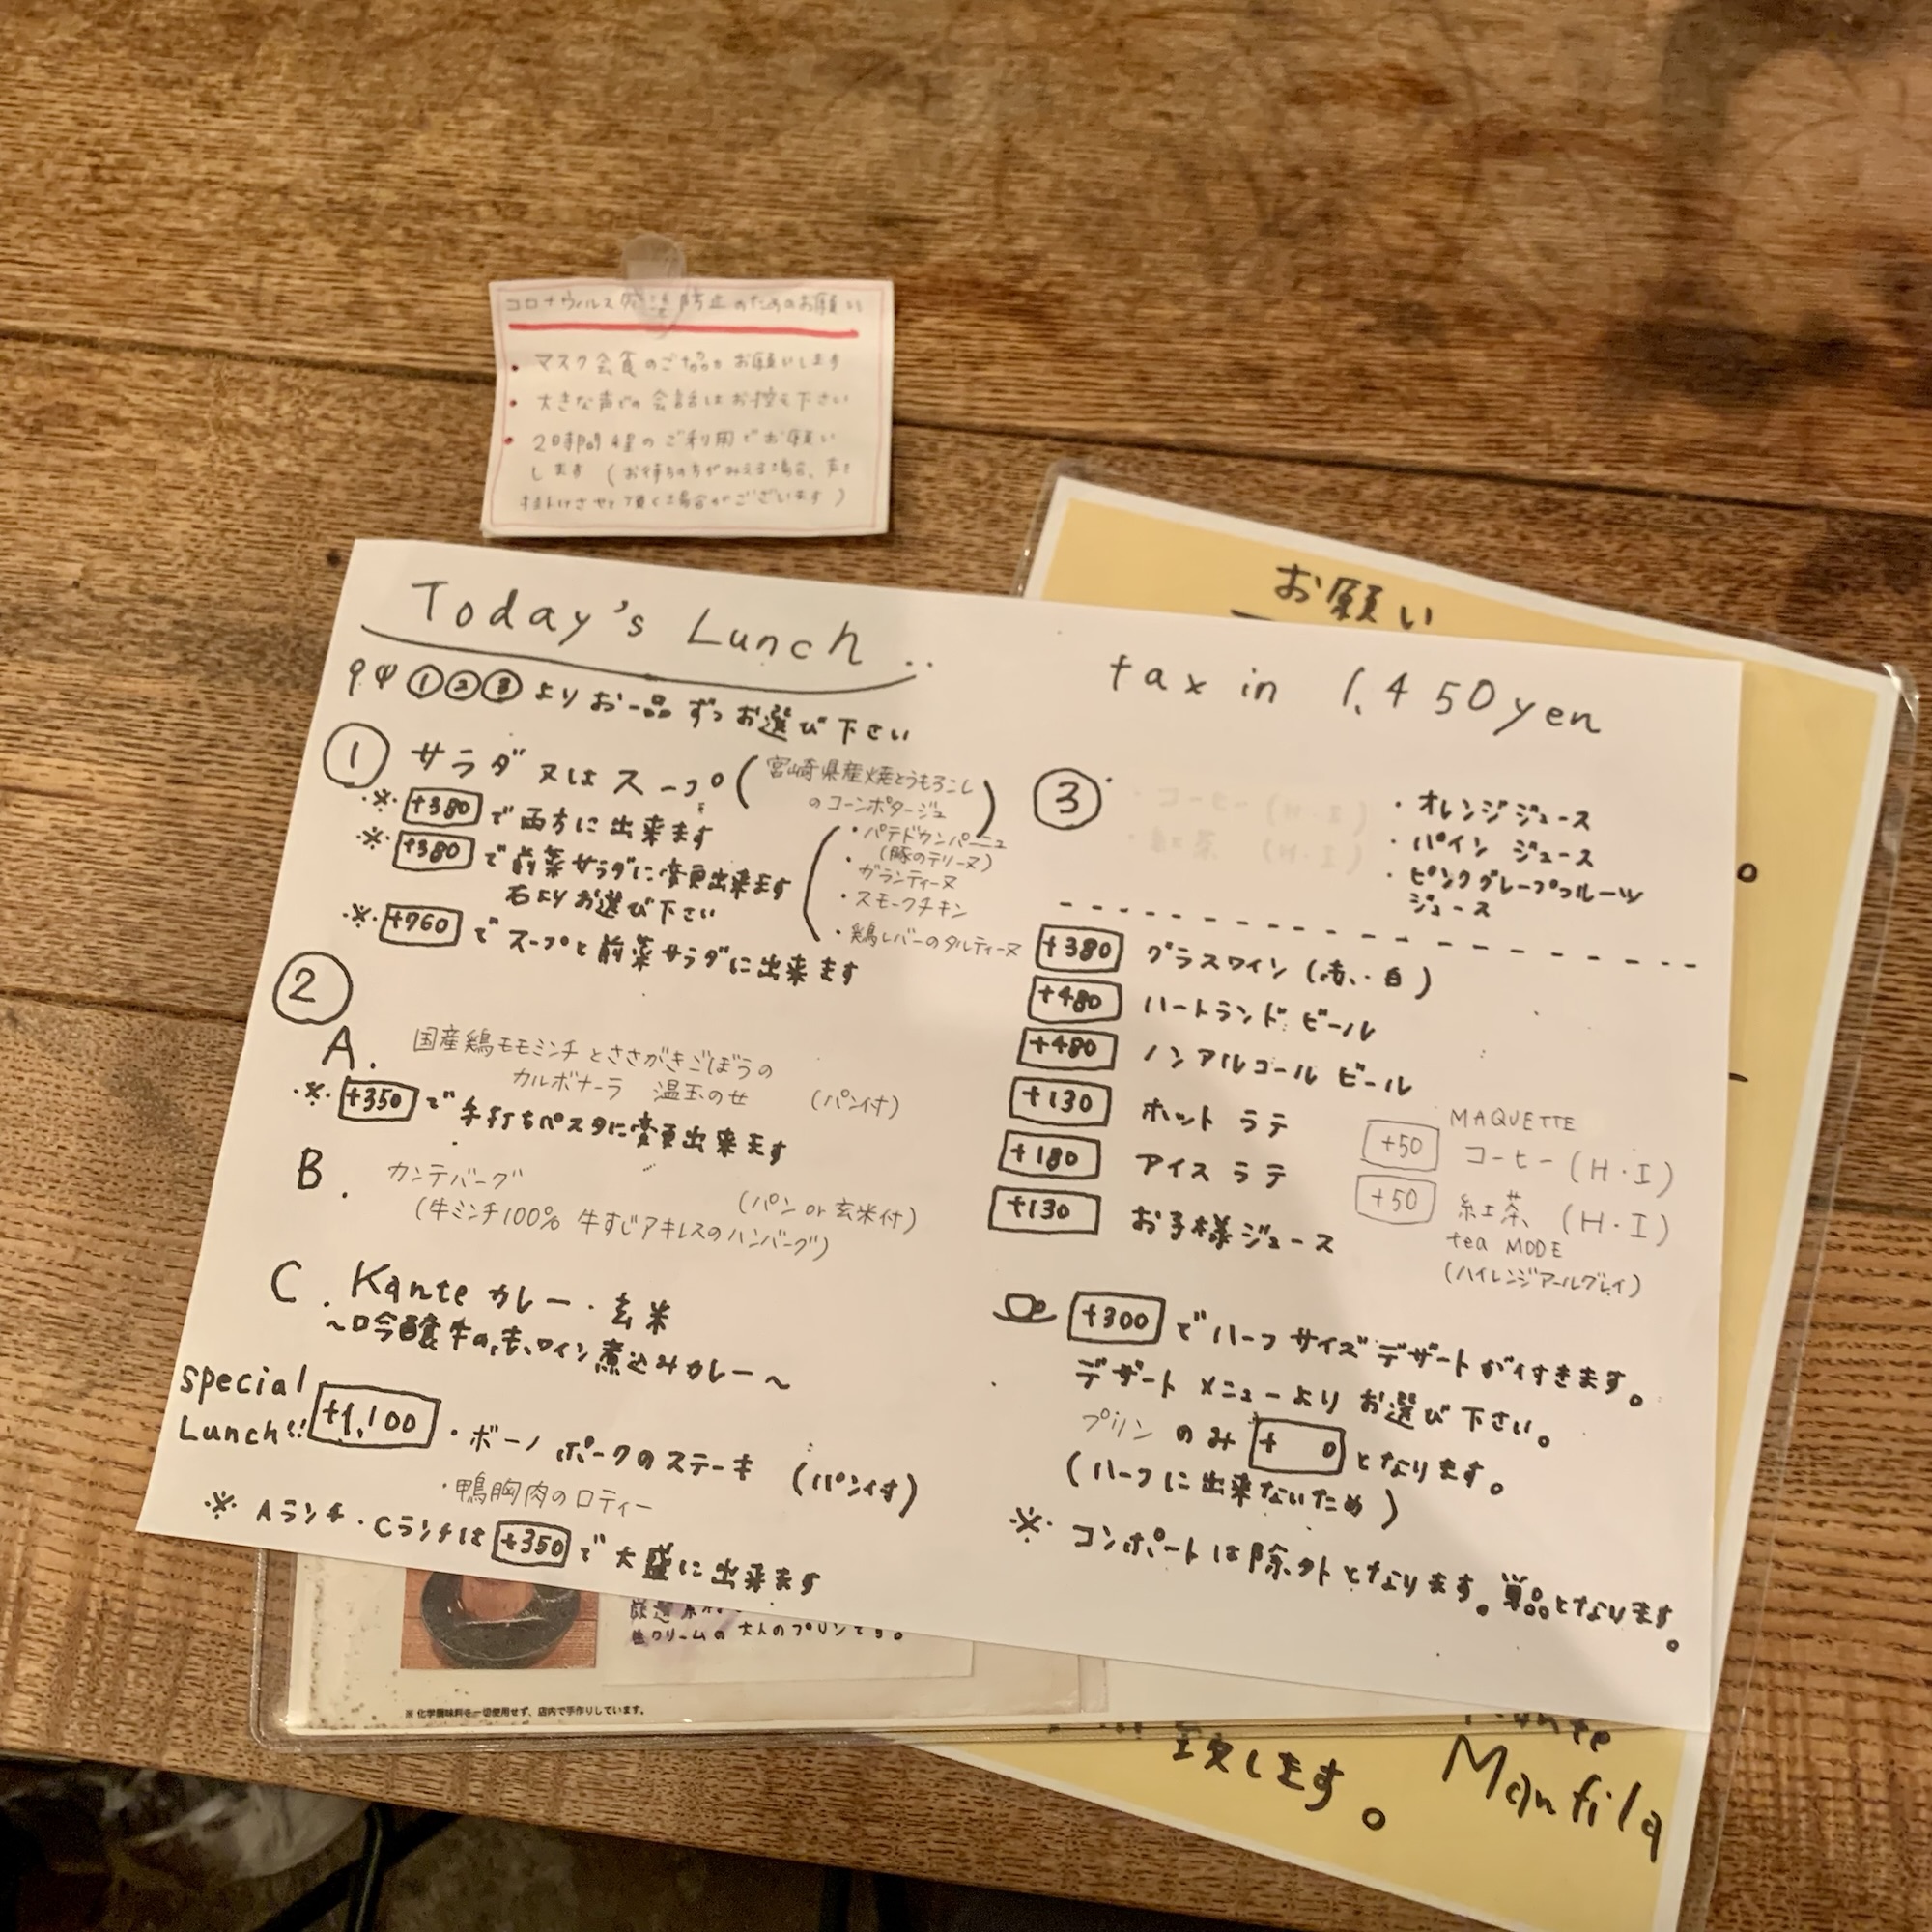 コロナウィルス感染防止のためのお願い
・マスク会食のご協力お願いします
・大きな声での会話はお控え下さい
・2時間程のご利用でお願い
します（お待ちの方がみえる場合、声を
掛けさせて頂く場合がございます）
お願い
Today's Lunch..
tax in 1,450yen
①②③よりお一品ずつお選び下さい
① サラダ又はスープ（宮崎県産焼とうもろこし
のコーンポタージュ）
※ +380 で両方に出来ます
※ +380 で前菜サラダに変更出来ます
右よりお選び下さい
・パテドカンパーニュ
（豚のテリーヌ）
・ガランティーヌ
・スモークチキン
・鶏レバーのタルティーヌ
※ +760 でスープと前菜サラダに出来ます
②
A. 国産鶏モモミンチとささがきごぼうの
カルボナーラ 温玉のせ （パン付）
※ +350 で手打ちパスタに変更出来ます
B. カンテバーグ
（パン or 玄米付）
（牛ミンチ100% 牛すじアキレスのハンバーグ）
C. Kante カレー・玄米
～吟醸牛の赤ワイン煮込みカレー～
special
Lunch!! +1,100 ・ボーノポークのステーキ （パン付）
・鴨胸肉のロティー
※ Aランチ・Cランチは +350 で大盛に出来ます
③ ・コーヒー（H・I）
・紅茶（H・I）
・オレンジジュース
・パイン ジュース
・ピンクグレープフルーツ
ジュース
+380 グラスワイン（赤・白）
+480 ハートランド ビール
+480 ノンアルコール ビール
+130 ホット ラテ
+180 アイス ラテ
+130 お子様ジュース
MAQUETTE
+50 コーヒー（H・I）
+50 紅茶（H・I）
tea MODE
（ハイレンジアールグレイ）
+300 でハーフサイズデザートが付きます。
デザートメニューよりお選び下さい。
プリンのみ + 0 となります。
（ハーフに出来ないため）
※ コンポートは除外となります。単品となります。
生クリームの大人のプリンです。
※化学調味料を一切使用せず、店内で手作りしています。
致します。
Manfila